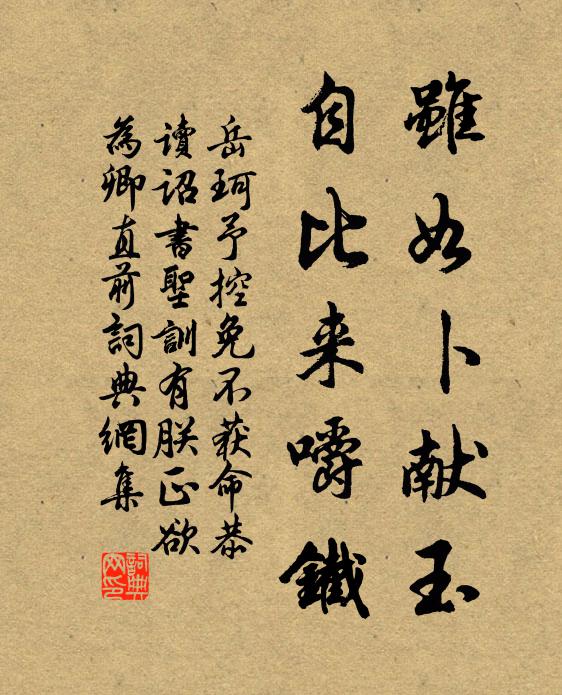 雖如卜献玉
自比来嚼鐵
岳珂予控免不获命恭
讀詔書聖訓有朕正欲
為卿直前詞典網集
詞典
网印